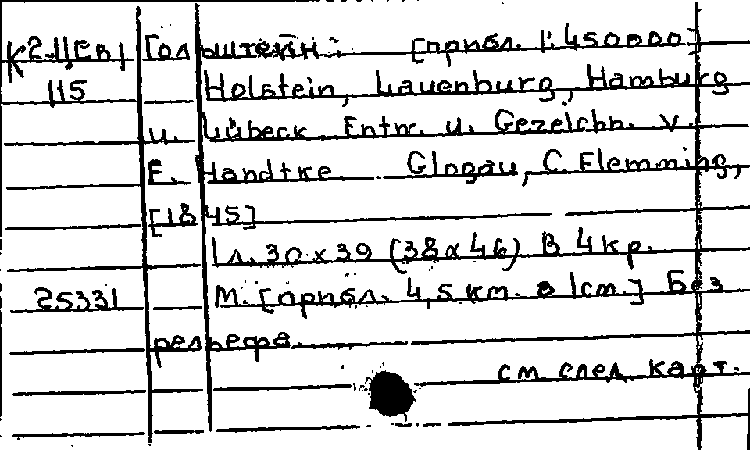 К 2-Цев/ Гольштейн: [прибл. 1:450000]
115 Holstein, Lauenburg, Hamburg
u. Lübeck. Entw. u. Gezeichn. v.
F. Handtke. Glogau, C. Flemming,
[1845]
1 л. 30 x 39 (38 x 46) В 4 кр.
25331 М. [прибл. 4,5 км. в 1 см.] Без
рельефа.
см след. карт.